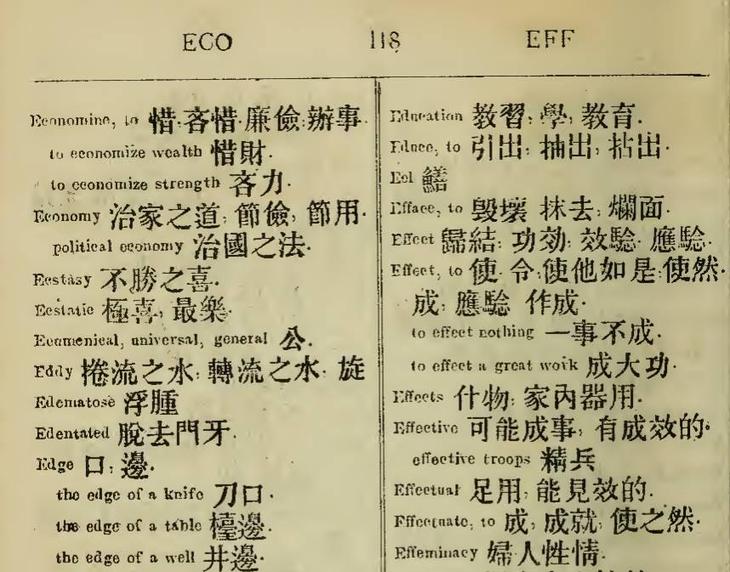 ECO 118 EFF
Economine, to 惜, 吝惜, 廉儉, 辦事.
to economize wealth 惜財.
to economize strength 吝力.
Economy 治家之道, 節儉, 節用.
political economy 治國之法.
Ecstasy 不勝之喜.
Ecstatic 極喜, 最樂.
Ecumenical, universal, general 公.
Eddy 捲流之水, 轉流之水, 旋
Edematose 浮腫
Edentated 脫去門牙.
Edge 口, 邊.
the edge of a knife 刀口.
the edge of a table 檯邊.
the edge of a well 井邊.
Education 教習, 學, 教育.
Educe, to 引出, 抽出, 拈出.
Eel 鱔
Efface, to 毀壞, 抹去, 爛面.
Effect 歸結, 功効, 效驗, 應驗.
Effect, to 使, 令, 使他如是, 使然.
成, 應驗, 作成.
to effect nothing 一事不成.
to effect a great work 成大功.
Effects 什物, 家內器用.
Effective 可能成事, 有成效的.
effective troops 精兵
Effectual 足用, 能見效的.
Effectuate, to 成, 成就, 使之然.
Effeminacy 婦人性情.